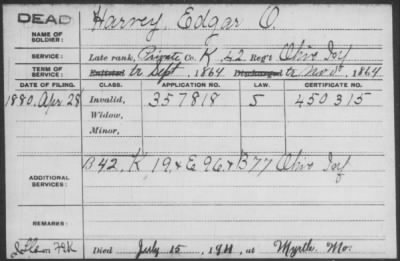 DEAD
Harvey, Edgar O.
NAME OF SOLDIER:
SERVICE: Late rank, Private Co. K, 42 Reg't Ohio Inf
TERM OF SERVICE: Enlisted tr Sept, 1864 Discharged tr Nov, 1864
DATE OF FILING. CLASS. APPLICATION NO. LAW. CERTIFICATE NO.
1880, Apr 28 Invalid, 357818 5 450315
Widow,
Minor,
B 42, K 19, & E 96, & B 77 Ohio Inf
ADDITIONAL SERVICES:
REMARKS:
Died July 15, 1911, at Myrtle Mo.